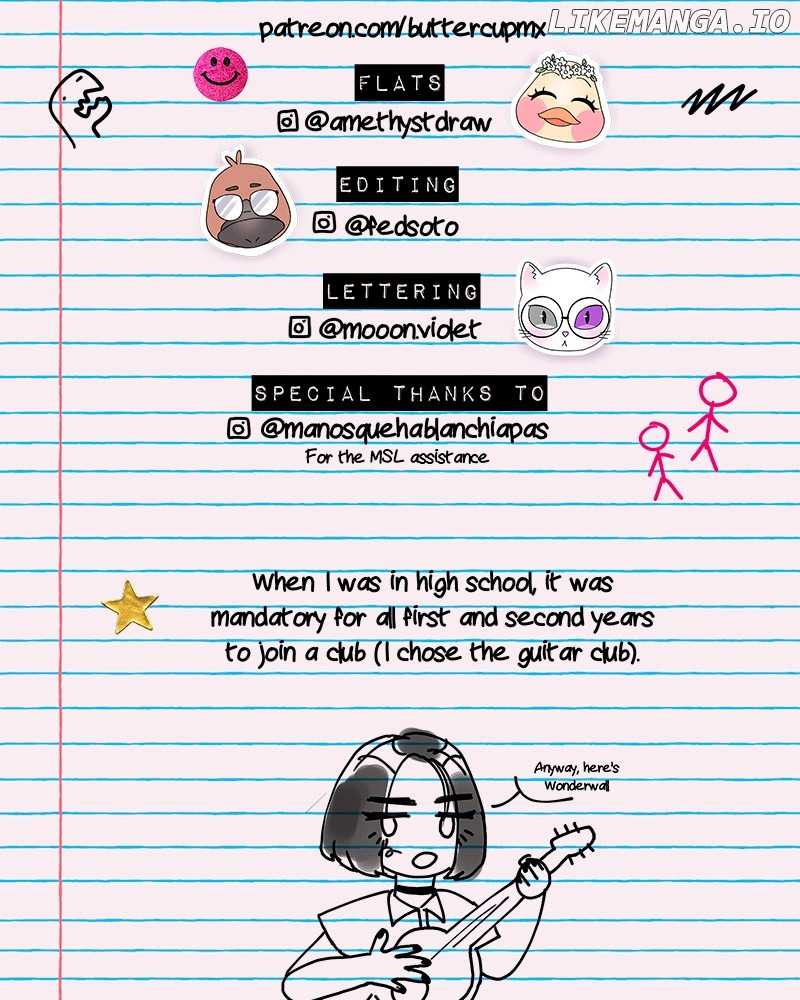 patreon.com/buttercupmx
LIKEMANGA.IO
FLATS
@amethystdraw
EDITING
@fedsoto
LETTERING
@mooon.violet
SPECIAL THANKS TO
@manosquehablanchiapas
For the MSL assistance
When I was in high school, it was
mandatory for all first and second years
to join a club (I chose the guitar club).
Anyway, here's
Wonderwall